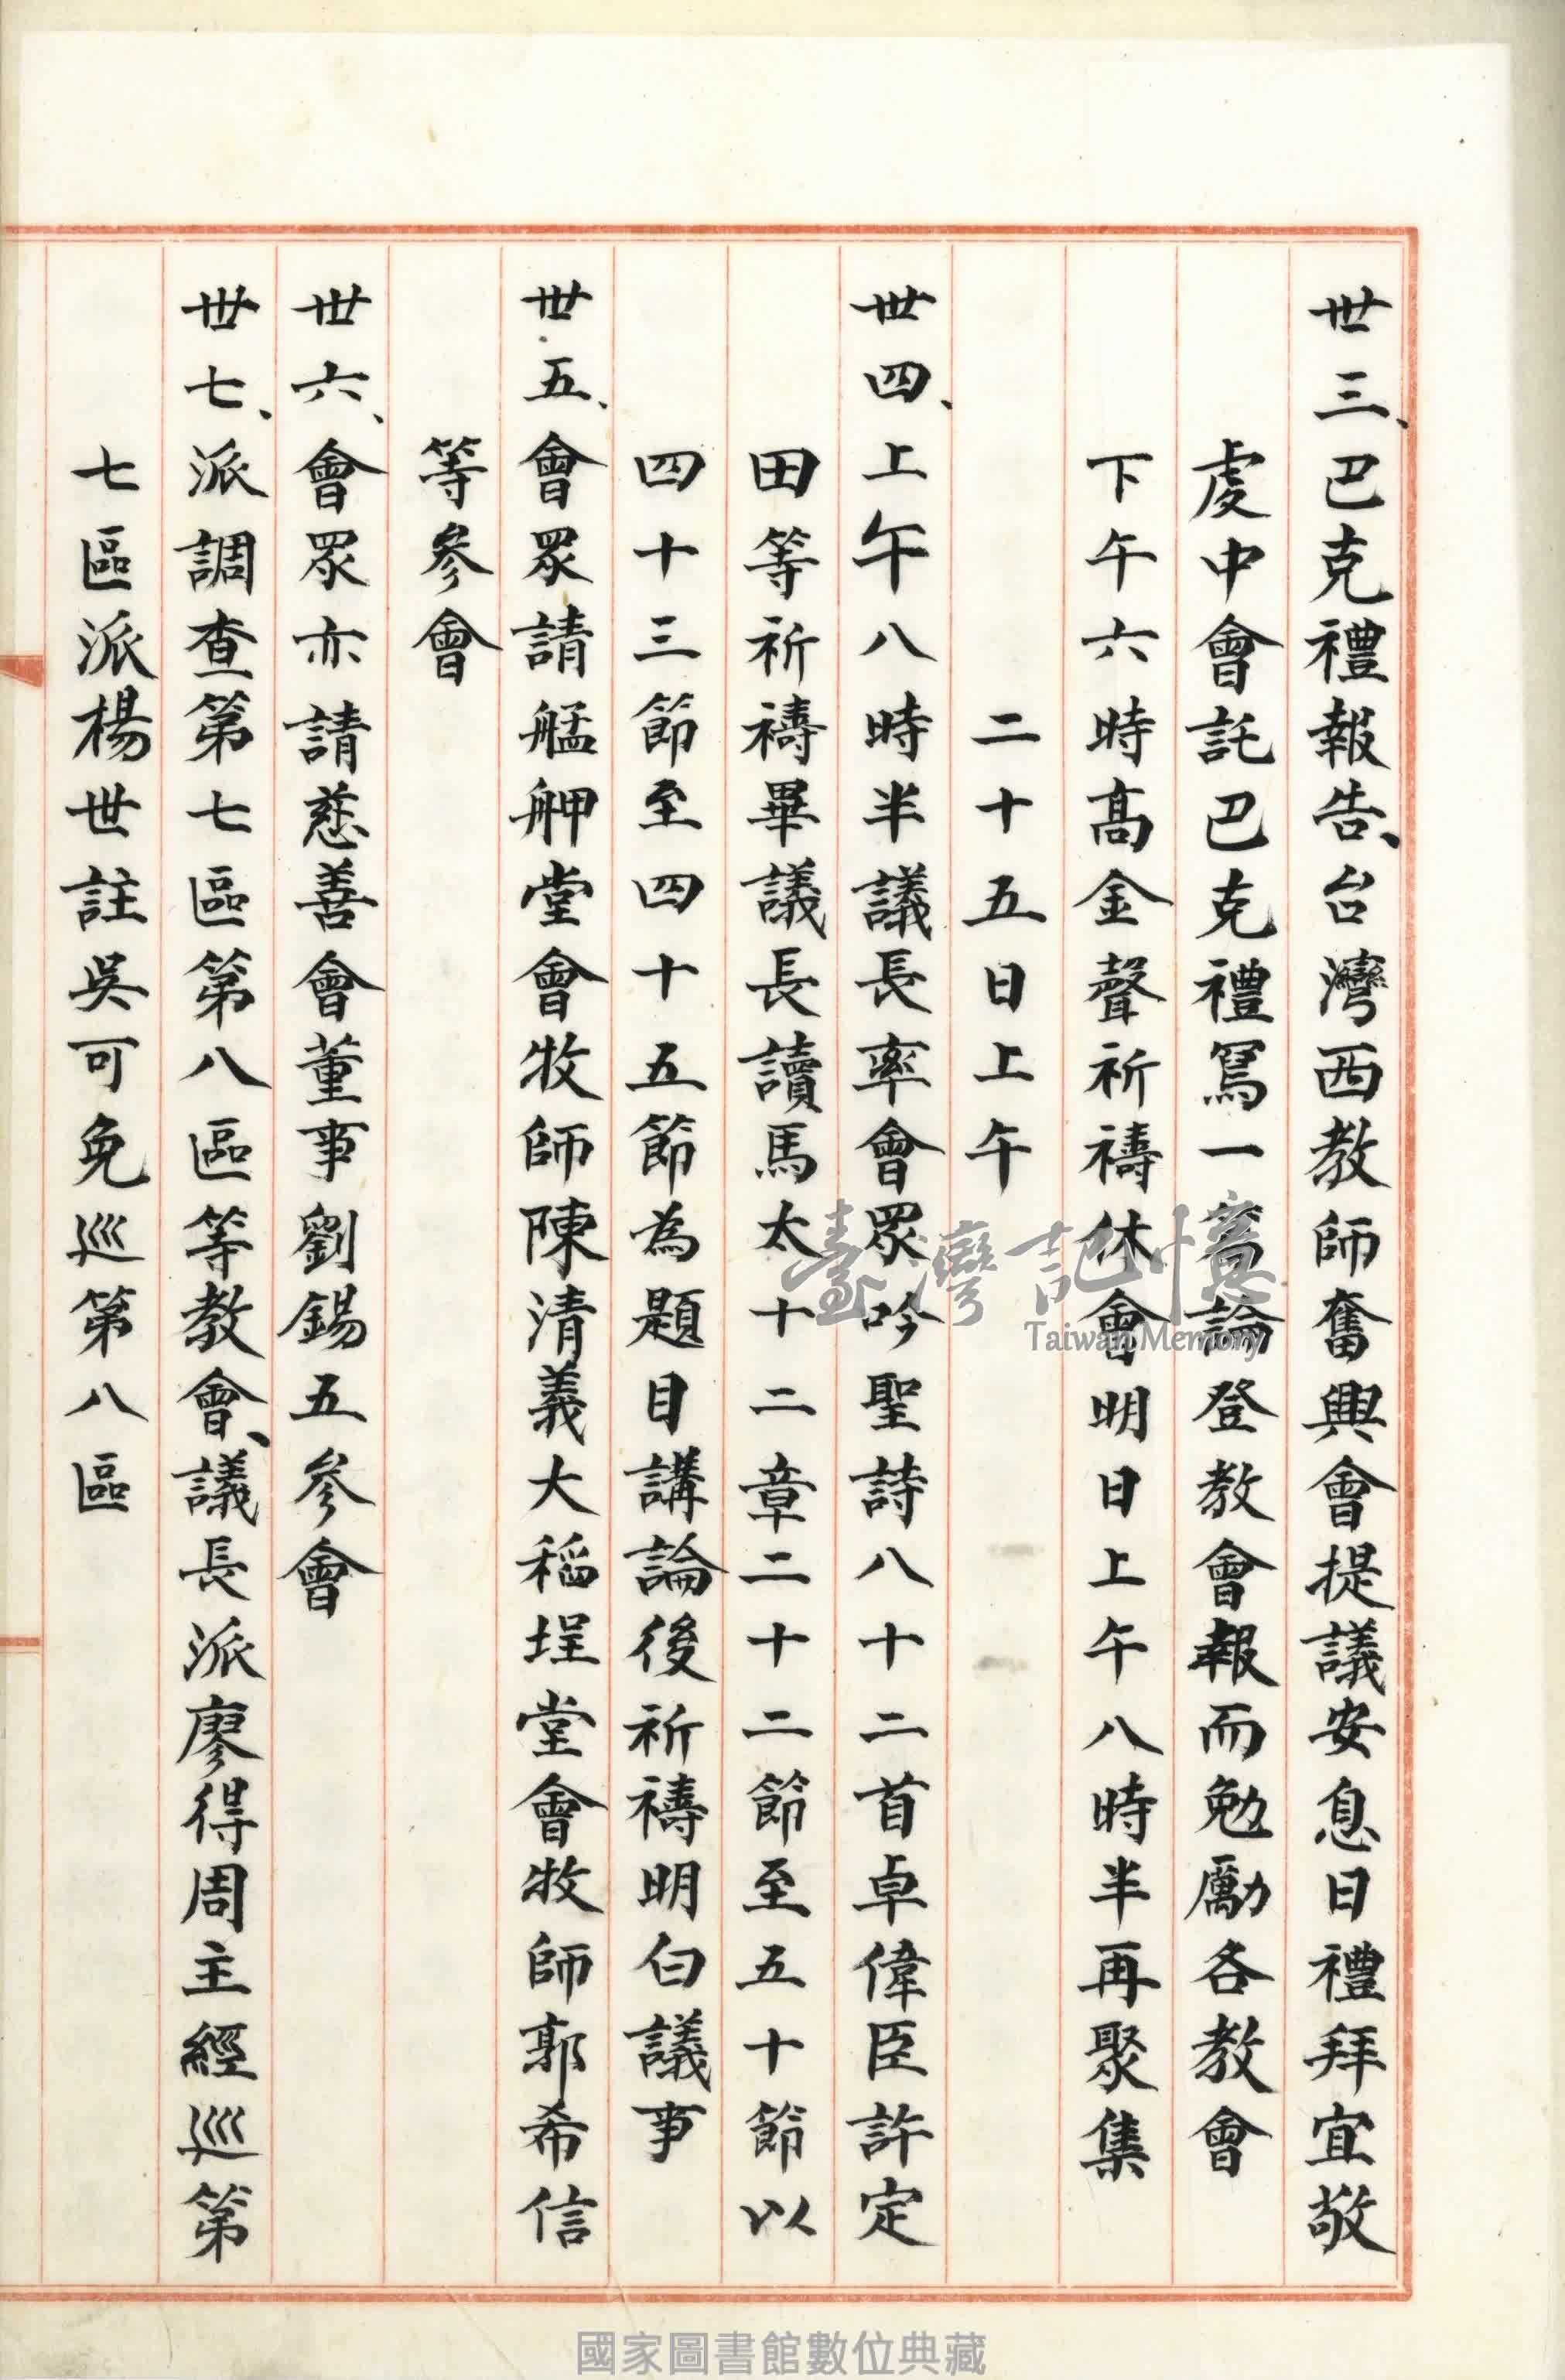 卅三、巴克禮報告、台灣西教師奮興會提議安息日禮拜宜敬
虔中會託巴克禮寫一篇論登教會報而勉勵各教會
下午六時高金聲祈禱休會明日上午八時半再聚集
二十五日上午
卅四、上午八時半議長率會眾吟聖詩八十二首卓偉臣許定
田等祈禱畢議長讀馬太十二章二十二節至五十節以
四十三節至四十五節為題目講論後祈禱明白議事
卅五、會眾請艋舺堂會牧師陳清義大稻埕堂會牧師郭希信
等參會
卅六、會眾亦請慈善會董事劉錫五參會
卅七、派調查第七區第八區等教會、議長派廖得周主經巡第
七區派楊世註吳可免巡第八區
臺灣記憶
Taiwan Memory
國家圖書館數位典藏